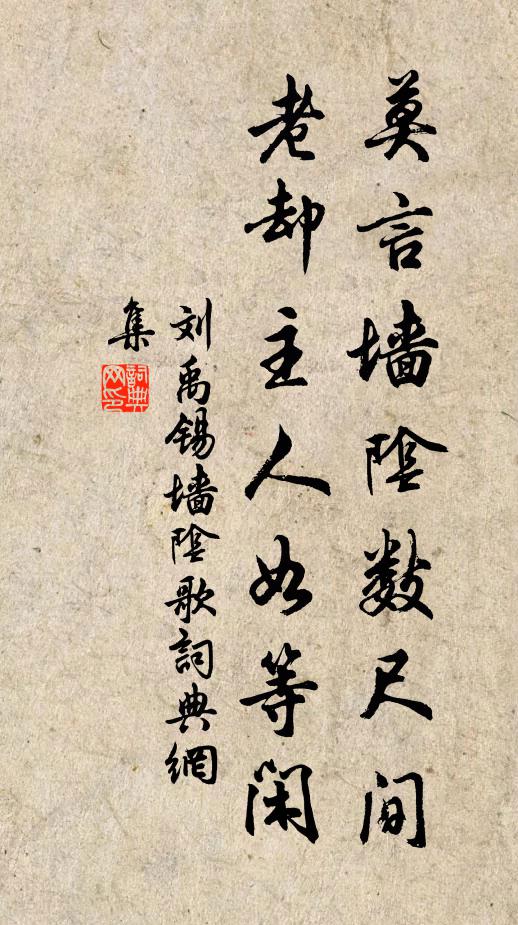 莫言墙陰数尺间
老却主人如等闲
刘禹锡墙陰歌詞典網
集
詞典网印